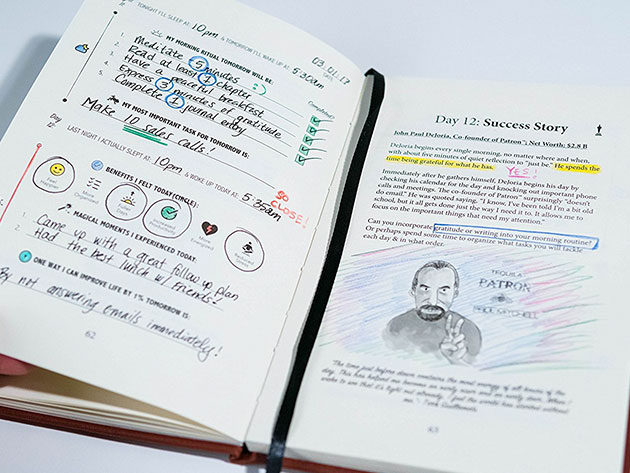 TONIGHT I'LL SLEEP AT: 10pm & TOMORROW I'LL WAKE UP AT: 5:30am
03.01.17
MY MORNING RITUAL TOMORROW WILL BE:
Completed?
1. Meditate 5 minutes :)
2. Read at least 1 chapter
3. Have a peaceful breakfast
4. Express 3 minutes of gratitude
5. Complete 1 journal entry
MY MOST IMPORTANT TASK FOR TOMORROW IS:
Make 10 sales calls!
Day
12
LAST NIGHT I ACTUALLY SLEPT AT: 10pm & WOKE UP TODAY AT: 5:35am
SO
CLOSE!
BENEFITS I FELT TODAY (CIRCLE):
More
Energized
MAGICAL MOMENTS I EXPERIENCED TODAY:
1. Came up with a great follow up plan
2. Had the best lunch w/ Friends!
ONE WAY I CAN IMPROVE LIFE BY 1% TOMORROW IS:
By not answering emails immediately!
62
Day 12: Success Story
John Paul DeJoria, Co-founder of Patron™; Net Worth: $2.8 B
DeJoria begins every single morning, no matter where and when,
with about five minutes of quiet reflection to "just be." He spends the
time being grateful for what he has.
YES!
Immediately after he gathers himself, DeJoria begins his day by
checking his calendar for the day and knocking out important phone
calls and meetings. The co-founder of Patron™ surprisingly "doesn't
do email." He was quoted saying, "I know, I've been told I'm a bit old
school, but it all gets done just the way I need it to. It allows me to
focus on the important things that need my attention."
Can you incorporate gratitude or writing into your morning routine?
Or perhaps spend some time to organize what tasks you will tackle
each day & in what order.
TEQUILA
PATRON
PAUL MITCHELL
The time just before dawn contains the most energy of all hours of the
day. This has helped me become an early riser and an early doer. When I
wake to see that it's light out already, I feel the world has started without
me. - Terri Guillemets
63